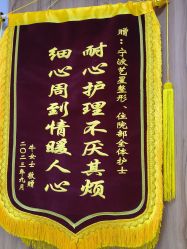 赠：宁波艺星整形、住院部全体护士
耐心护理不厌其烦
细心周到情暖人心
牛女士 敬赠
二〇二三年九月